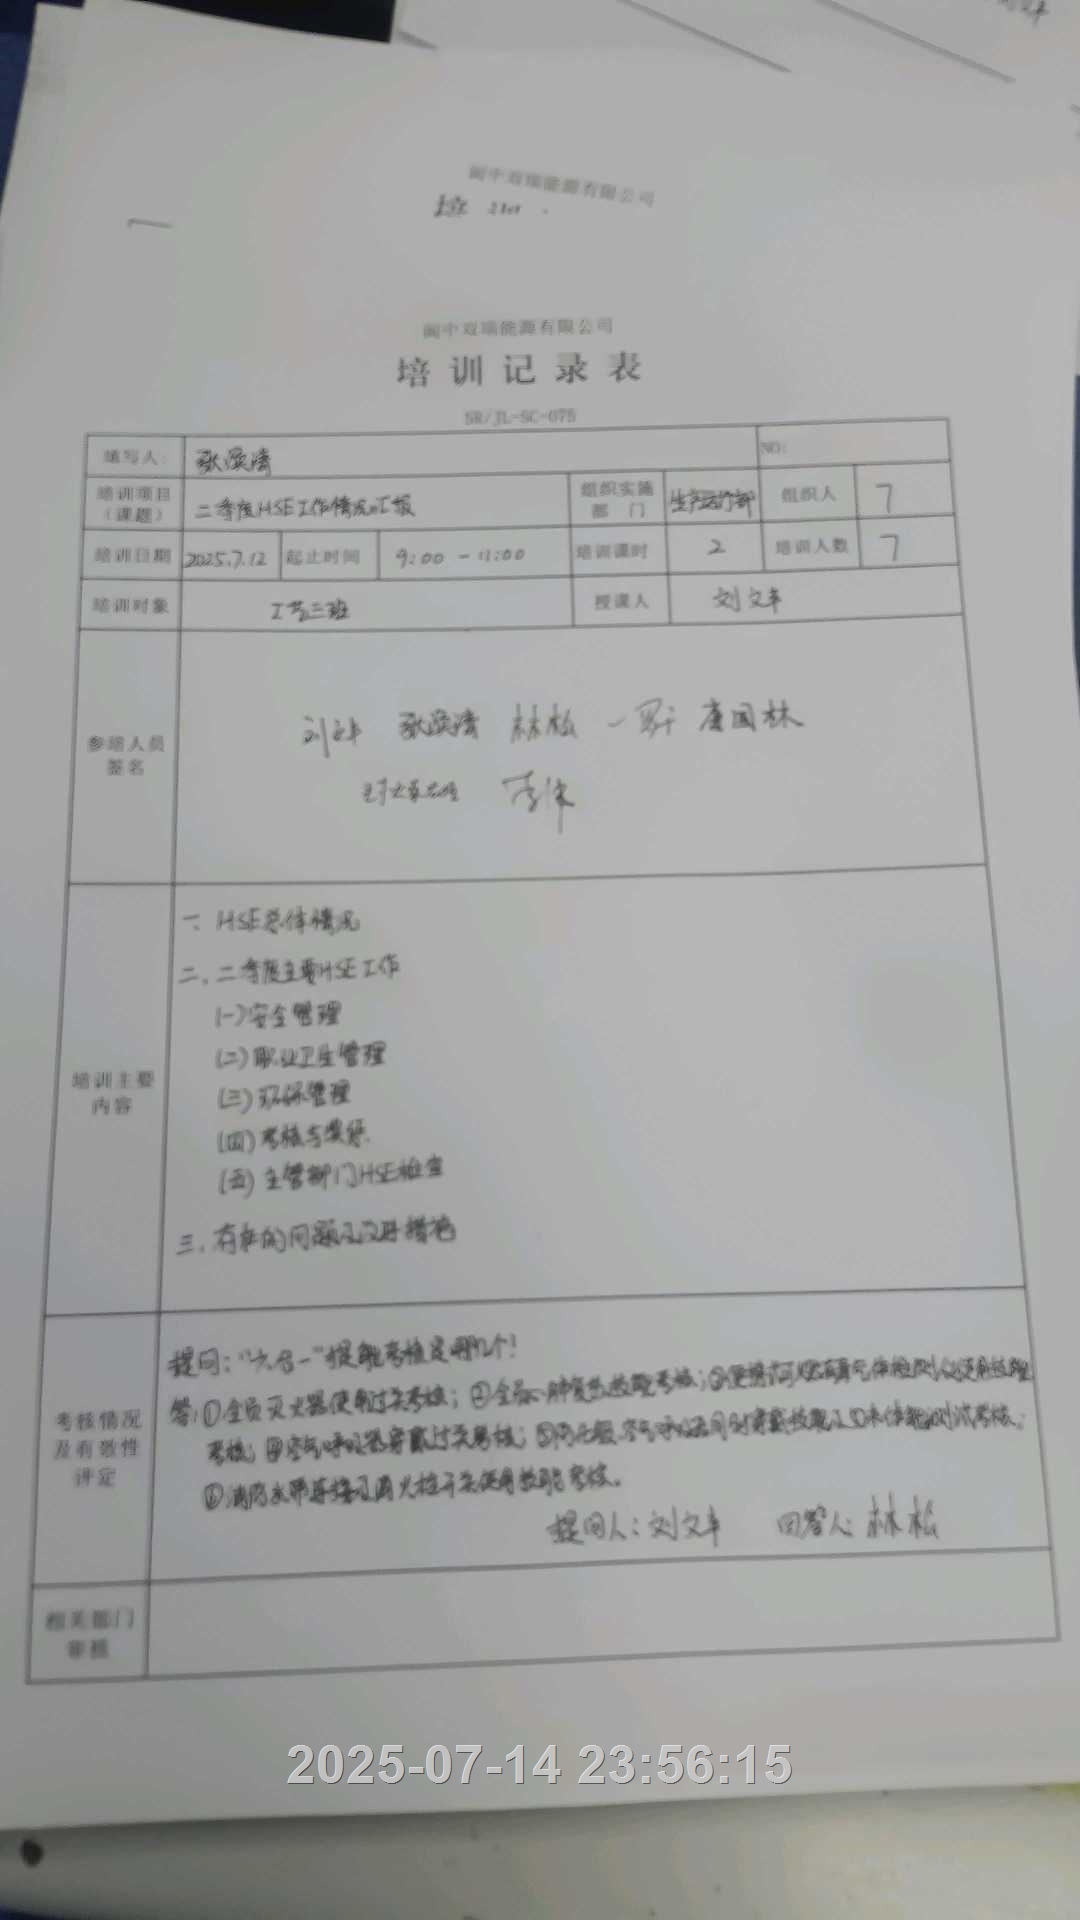 阆中双瑞能源有限公司
阆中双瑞能源有限公司
培训记录表
SR/JL-SC-075
填写人: NO:
培训项目（课题） 二季度HSE工作情况汇报 组织实施部门 生产运行部 组织人 7
培训日期 2025.7.12 起止时间 9:00 - 11:00 培训课时 2 培训人数 7
培训对象 工艺三班 授课人 刘文丰
参培人员签名
林松 唐国林
培训主要内容
一、HSE总体情况
二、二季度主要HSE工作
(一)安全管理
(二)职业卫生管理
(三)环保管理
(四)考核与奖惩
(五)主管部门HSE检查
三、存在的问题及改进措施
考核情况及有效性评定
提问：“六合一”技能考核是哪几个！
答：①全员灭火器使用过关考核；②全员心肺复苏技能考核；③便携式可燃有毒气体检测仪使用技能
考核；④空气呼吸器穿戴过关考核；
⑥消防水带连接及消火栓开关使用技能考核。
提问人：刘文丰 回答人：林松
相关部门审核
2025-07-14 23:56:15